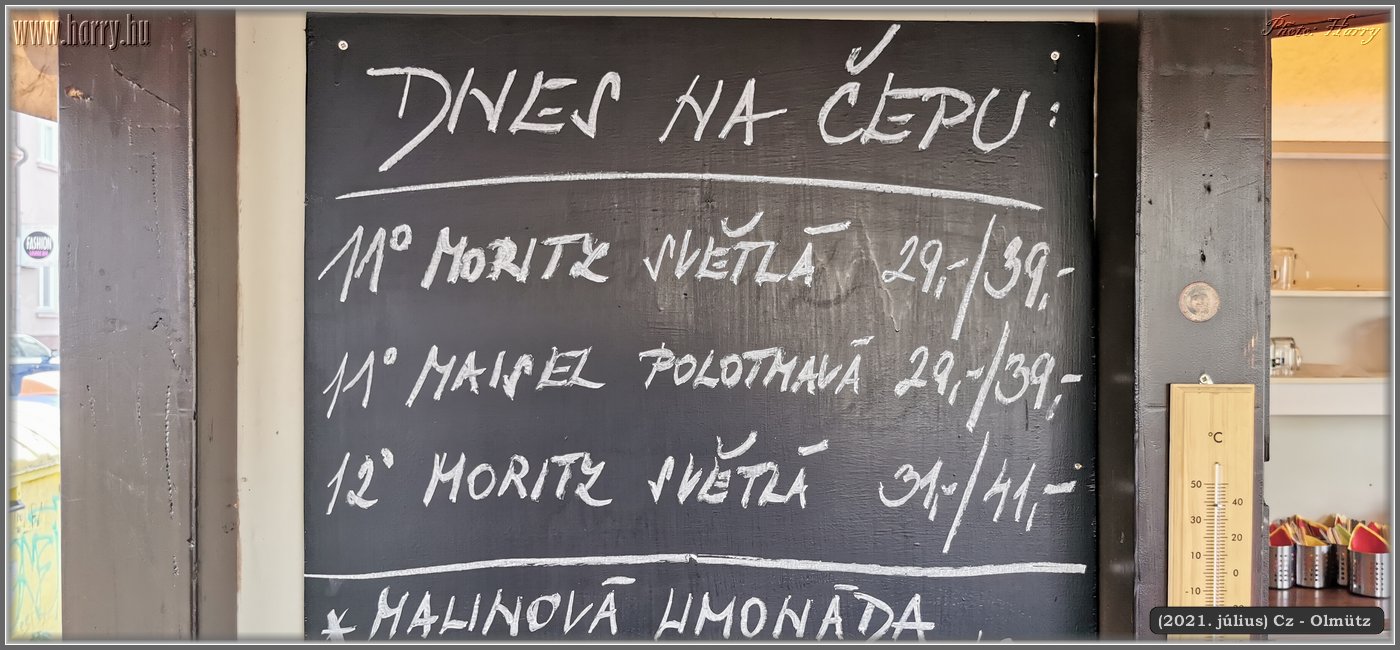 www.harry.hu
Photo: Harry
DNES NA ČEPU:
11° MORITZ SVĚTLÁ 29,-/39,-
11° MAISEL POLOTMAVÁ 29,-/39,-
12° MORITZ SVĚTLÁ 31,-/41,-
* MALINOVÁ LIMONÁDA
FASHION
°C
50
40
30
20
10
0
-10
(2021. július) Cz - Olmütz